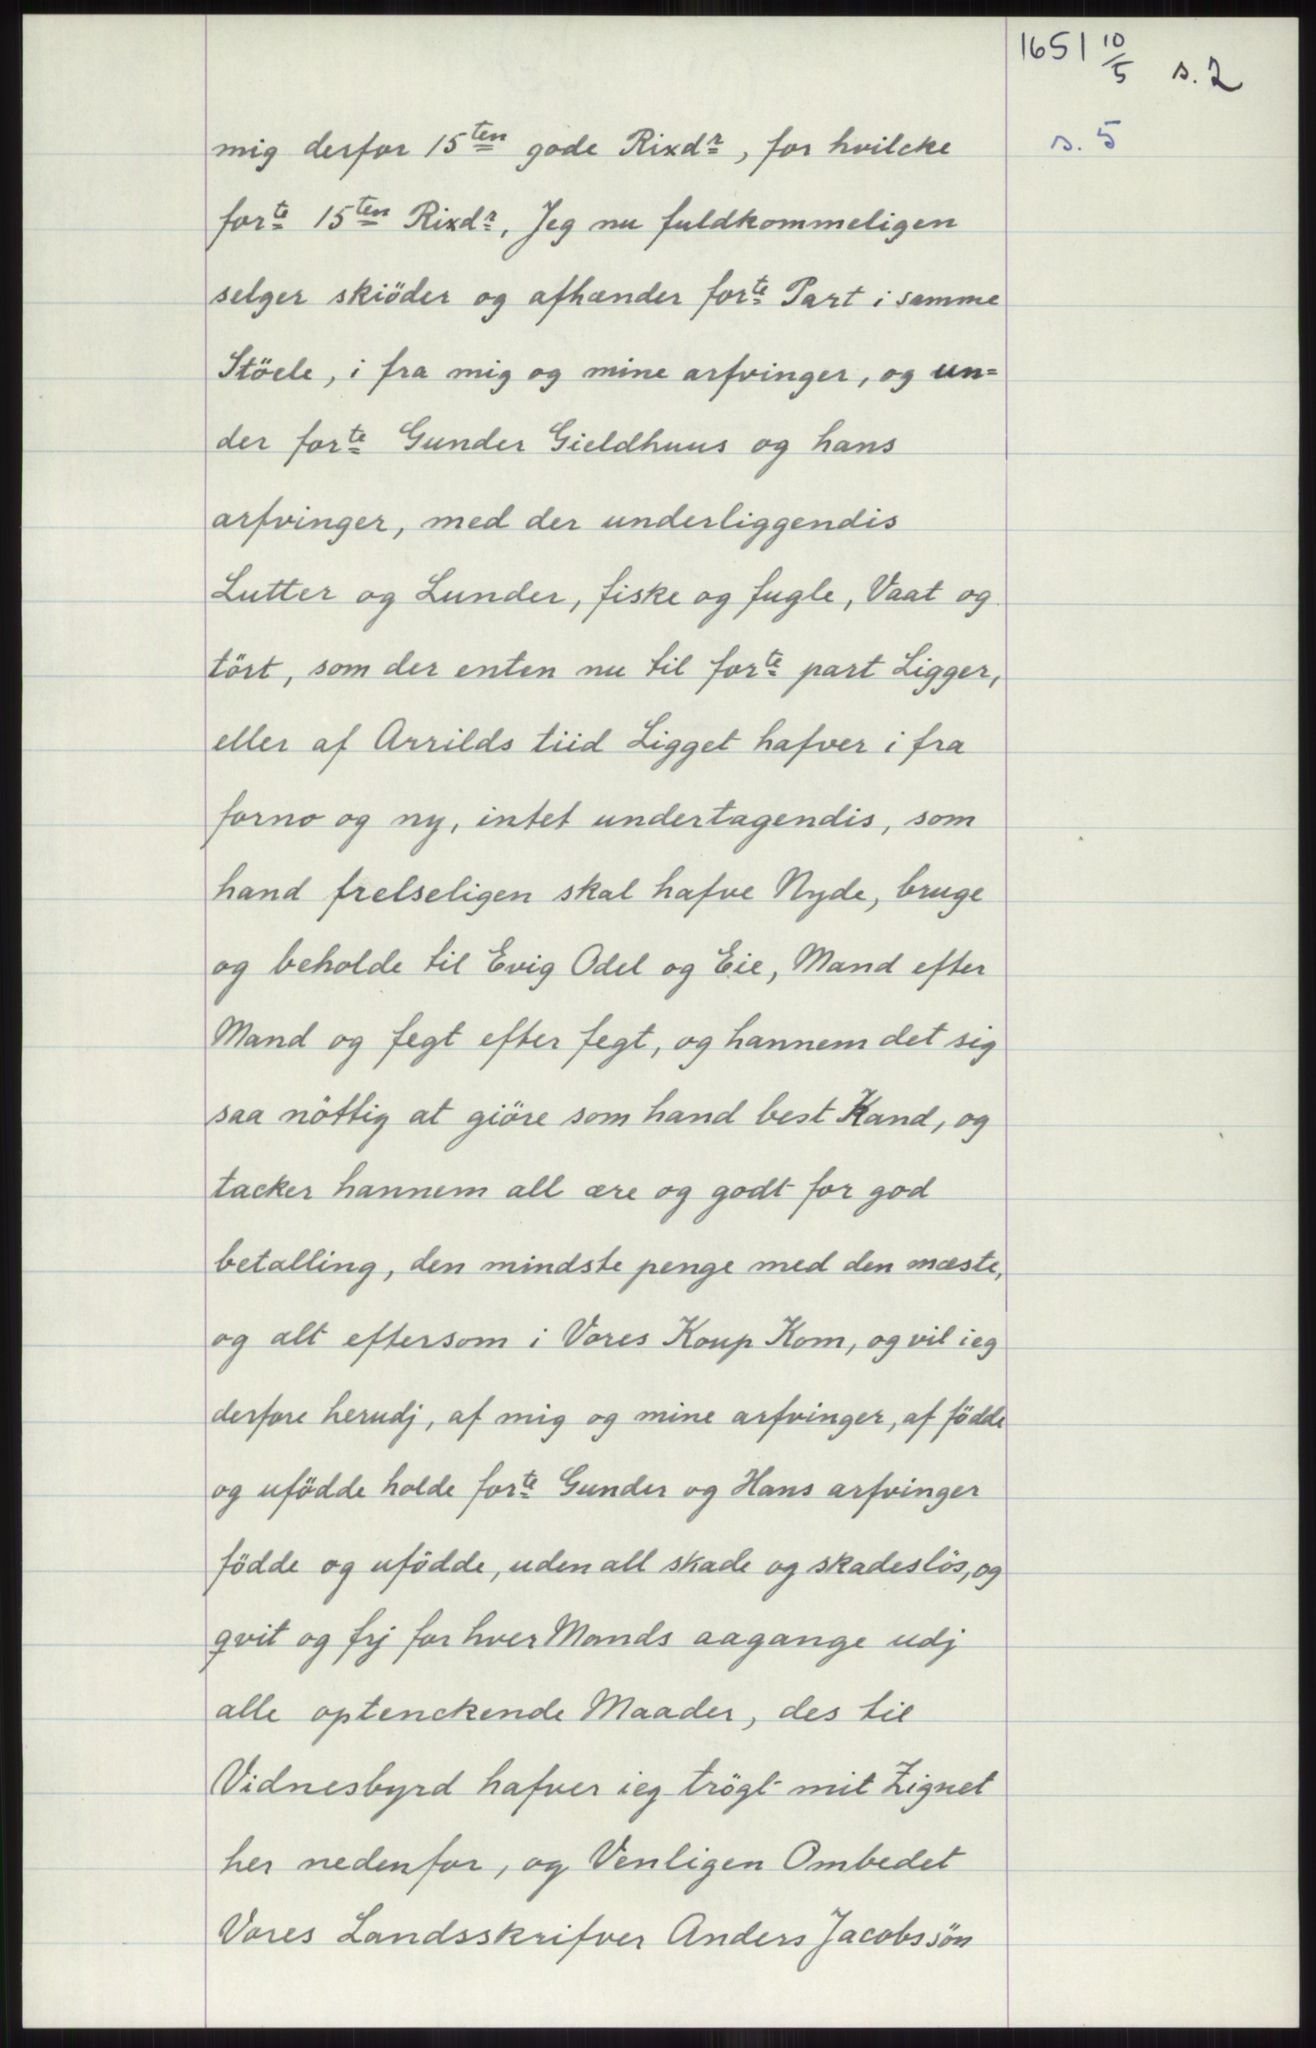 1651 10/5 s. 2
s. 5
mig derfor 15ten gode Rixdr, for hvilcke
forte 15ten Rixdr, Jeg nu fuldkommeligen
selger skiöder og afhænder forte Part i samme
Stöele, i fra mig og mine arfvinger, og un=
der forte Gunder Gieldhuus og hans
arfvinger, med der underliggendis
Lutter og Lunder, fiske og fugle, Vaat og
tört, som der enten nu til forte part Ligger,
eller af Arrilds tiid Ligget hafver i fra
forno og ny, intet undertagendis, som
hand frelseligen skal hafve Nyde, bruge
og beholde til Evig Odel og Eie, Mand efter
Mand og fegt efter fegt, og hannem det sig
saa nöttig at giöre som hand best Kand, og
tacker hannem all ære og godt for god
betalling, den mindste penge med den mæste,
og alt eftersom i Vores Koup Kom, og vil ieg
derfore herudj, af mig og mine arfvinger, af födde
og ufödde holde forte Gunder og Hans arfvinger
födde og ufödde, uden all skade og skadeslös, og
qvit og frj for hver Mands aagange udj
alle optenckende Maader, des til
Vidnesbyrd hafver ieg trögt mit Zignet
her nedenfor, og Venligen Ombedet
Vores Landsskrifver Anders Jacobssön